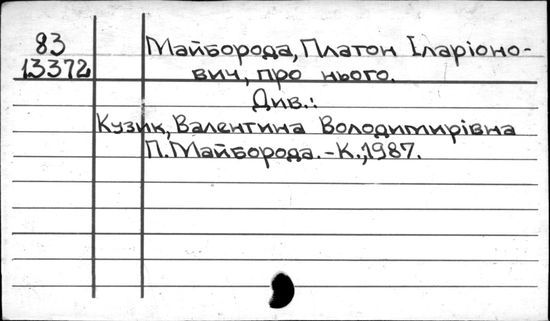 83
13372
Майборода, Платон Іларіоно-
вич, про нього.
Див.:
Кузик, Валентина Володимирівна
П. Майборода. - К., 1987.